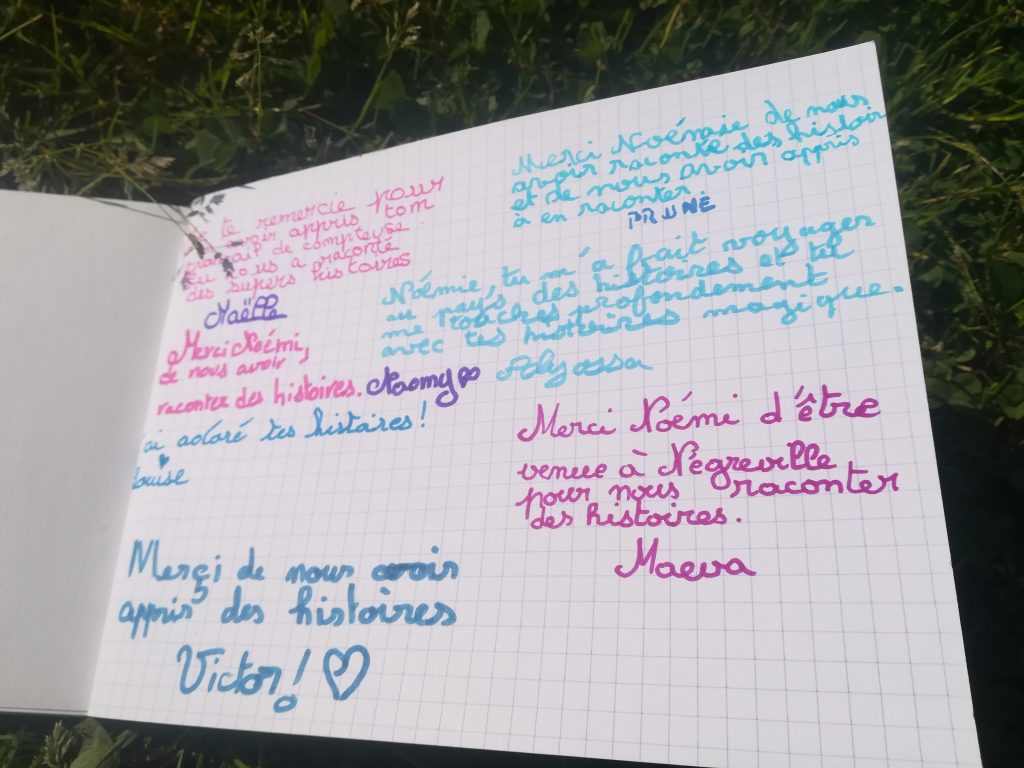 te remercie pour
avoir appris tom
travail de compteuse.
tu nous a raconté
des supers histoires
Maëlle
Merci Noémi,
de nous avoir
raconter des histoires. Naomy
ai adoré tes histoires!
Louise
Merci de nous avoir
appris des histoires
Victor! ♡
Merci Noémie de nous
avoir raconté des histoir
et de nous avoir appris
à en raconter.
PRUNE
Noémie, tu m'a fait voyager
au pays des histoires et tu
me touches profondement
avec tes histoires magique.
Alyassa
Merci Noémi d'être
venue à Négreville
pour nous raconter
des histoires.
Maeva